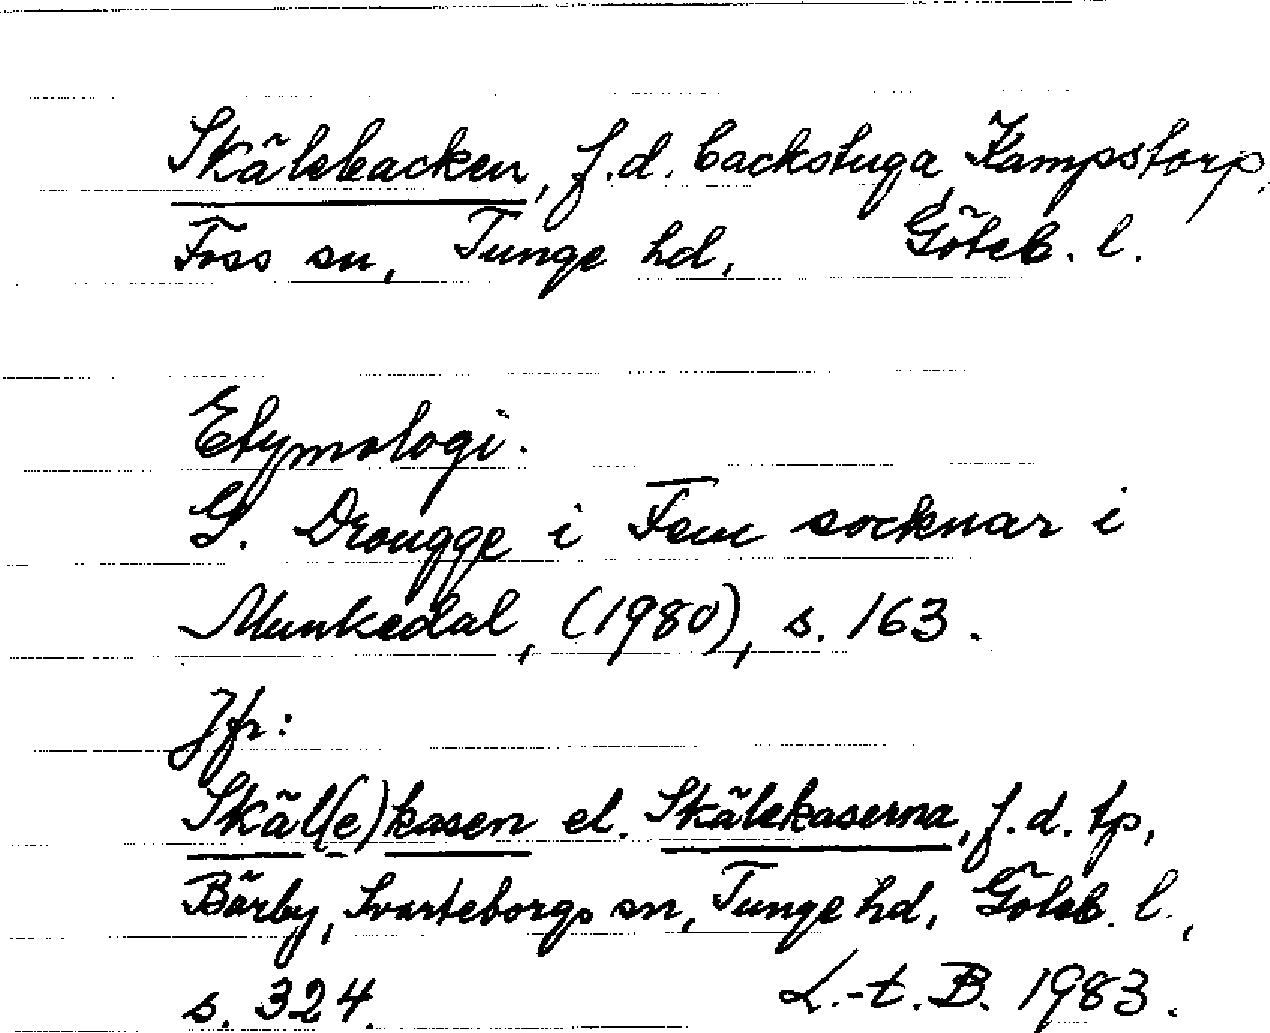 Skälebacken, f.d. backstuga, Kampstorp,
Foss sn, Tunge hd, Göteb. l.
Etymologi.
G. Drougge i Fem socknar i
Munkedal, (1980), s. 163.
Jfr:
Skäl(e)kasen el. Skälekaserna, f.d. tp,
Bärby, Svarteborgs sn, Tunge hd, Göteb. l.,
s. 324. L.-t. B. 1983.